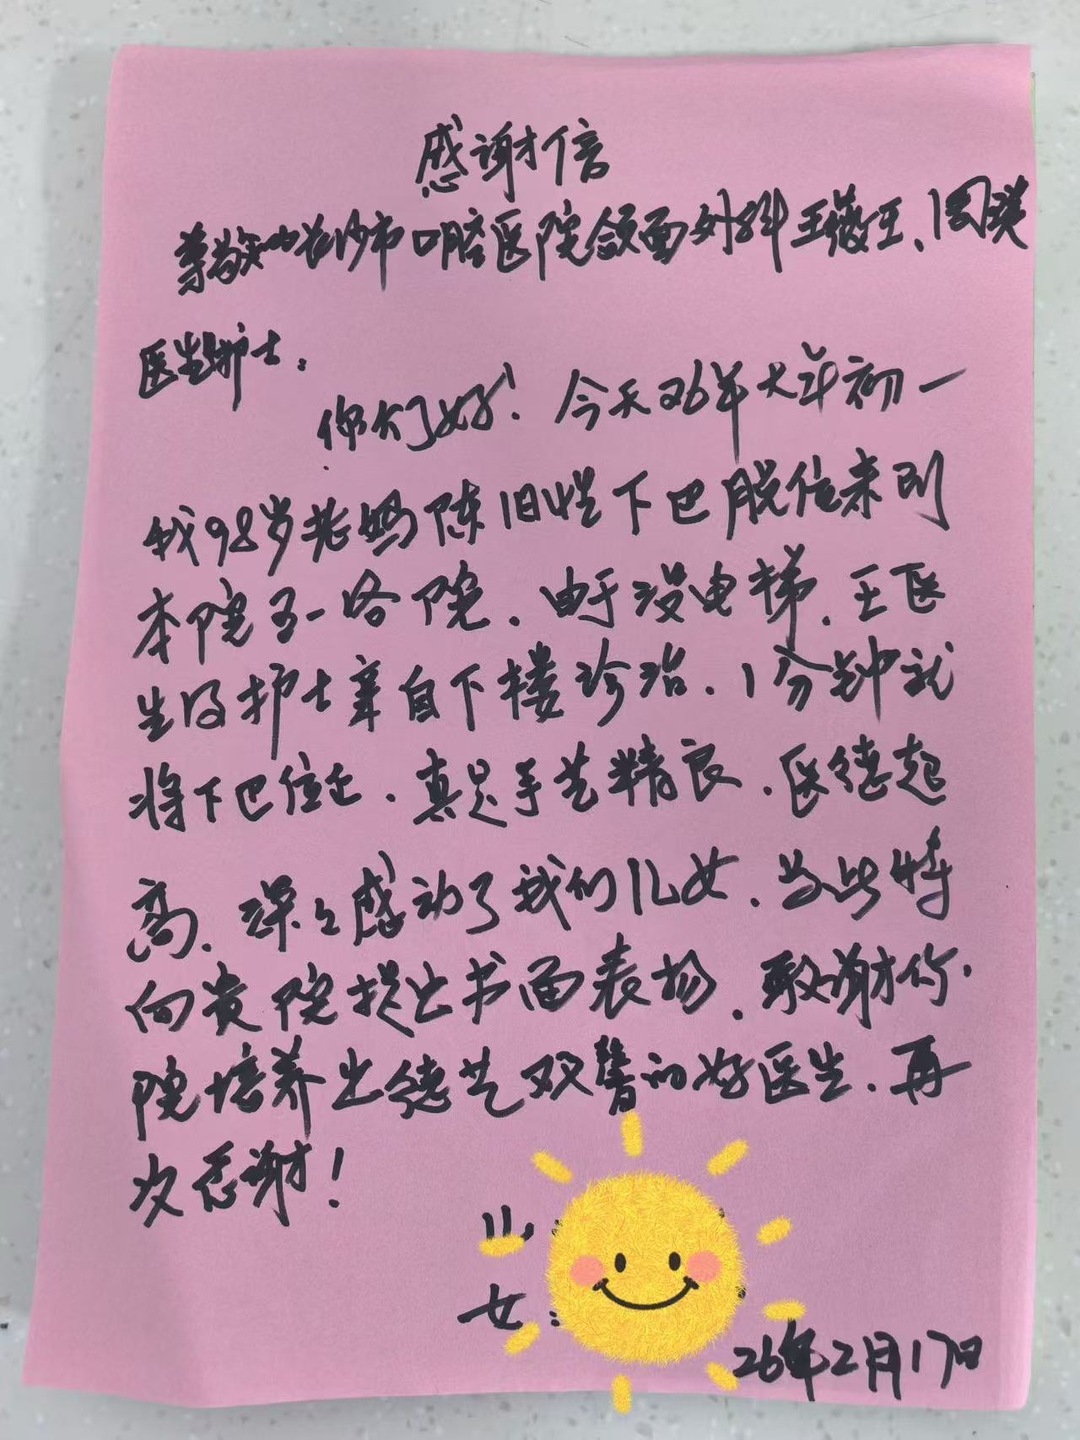 感谢信
尊敬的长沙市口腔医院颌面外科王薇王、周瑛
医生护士：
你们好！今天26年大年初一
我98岁老妈陈旧性下巴脱位来到
本院五一路院．由于没电梯．王医
生及护士亲自下楼诊治．1分钟就
将下巴位正．真是手艺精良．医德超
高．深深感动了我们儿女．为此特
向贵院提出书面表扬．感谢你
院培养出德艺双馨的好医生．再
次感谢！
儿：
女：
26年2月17日